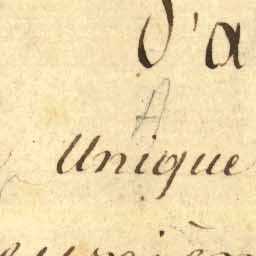 d'a
A
Unique